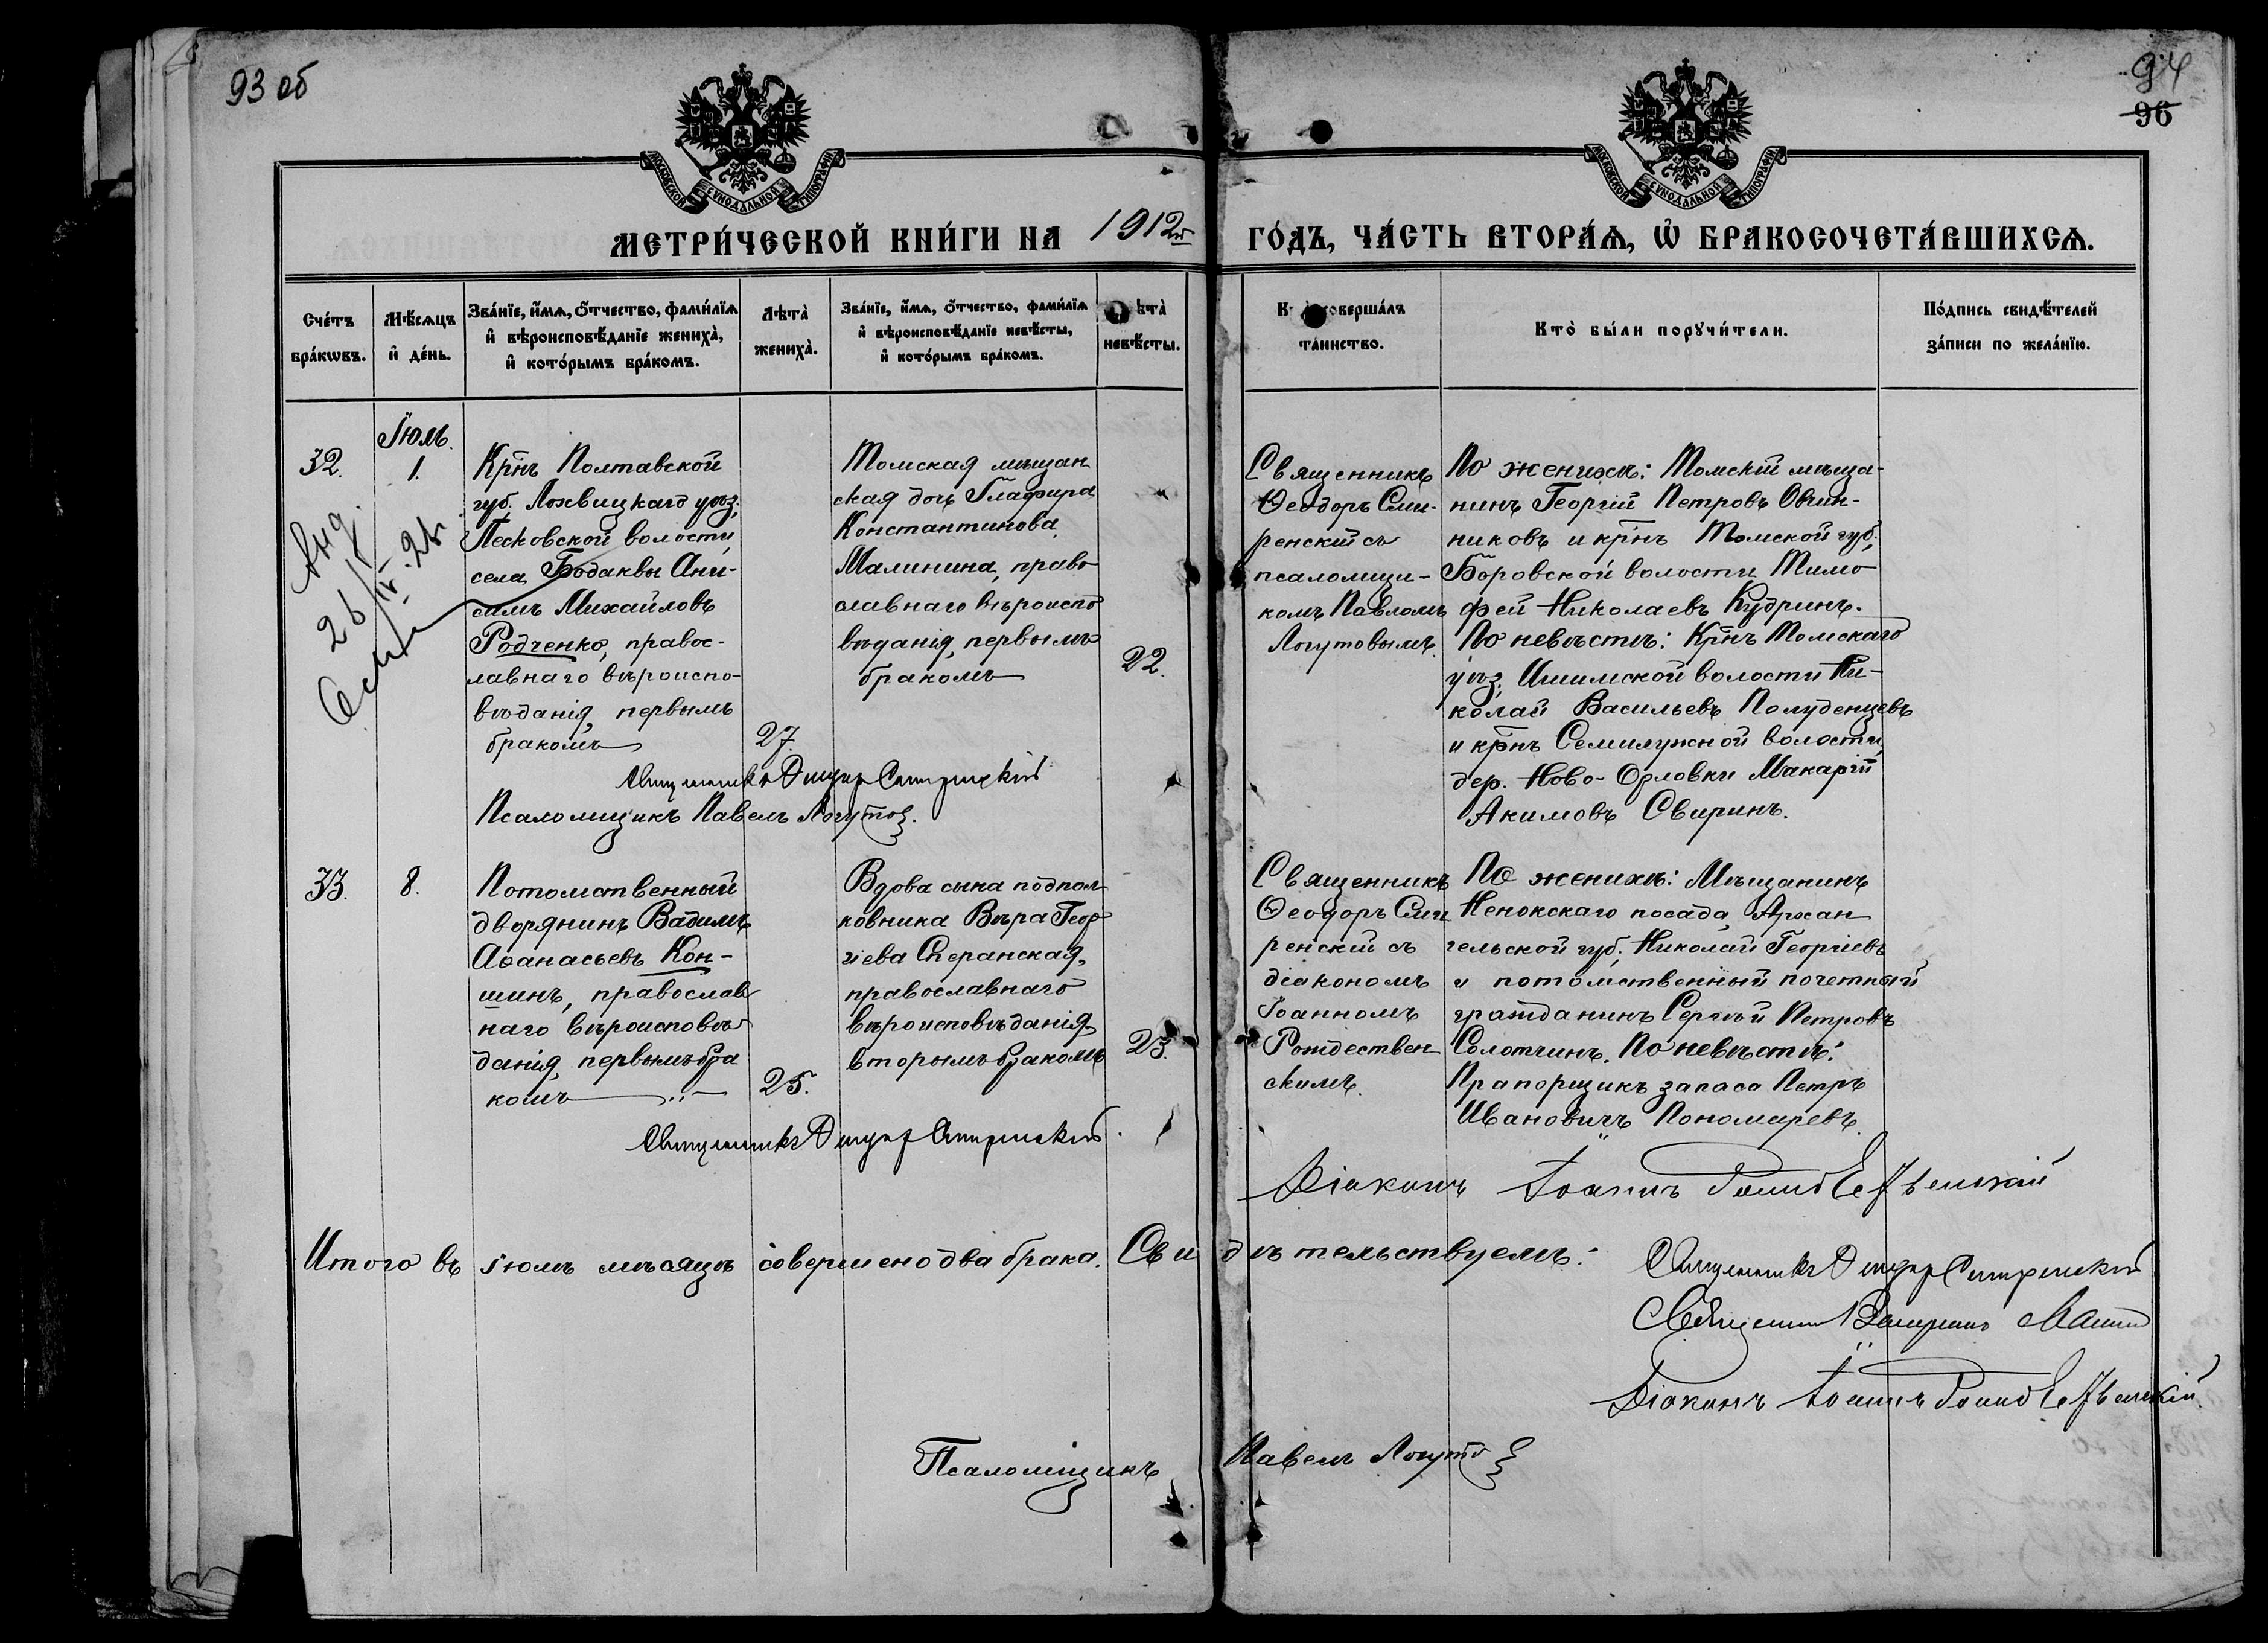 93 об
94
96
МОСКОВСКОЙ СѴНОДАЛЬНОЙ ТИПОГРАФІИ
МОСКОВСКОЙ СѴНОДАЛЬНОЙ ТИПОГРАФІИ
МЕТРИ́ЧЕСКОЙ КНИ́ГИ НА 1912й ГО́ДЪ, ЧА́СТЬ ВТОРА́Ѧ, Ѡ҆ БРАКОСОЧЕТА́ВШИХСѦ.
Сче́тъ
бра́кѡвъ.
Мѣ́сѧцъ
и҆ де́нь.
Зва́нїе, и҆́мѧ, ѻ҆́тчество, фами́лїѧ
и҆ вѣроисповѣ́данїе жениха̀,
и҆ кото́рымъ бра́комъ.
Лѣта̀
жениха̀.
Зва́нїе, и҆́мѧ, ѻ҆́тчество, фами́лїѧ
и҆ вѣроисповѣ́данїе невѣ́сты,
и҆ кото́рымъ бра́комъ.
ѣта̀
невѣ́сты.
К совершалъ
та́инство.
Кто̀ бы́ли порꙋчи́тели.
По́дпись свидѣ́телей
за́писи по жела́нїю.
32.
Іюль.
1.
Крнъ Полтавской
губ. Лохвицкаго уѣз.,
Песковской волости,
села Бодаквы Они-
симъ Михайловъ
Родченко, правос-
лавнаго вѣроиспо-
вѣданія, первымъ
бракомъ
27.
Томская мѣщан
ская дочь Глафира
Константинова
Малинина, право
славнаго вѣроиспо
вѣданія, первымъ
бракомъ
22.
Священникъ
Ѳеодоръ Сми-
ренскій съ
псаломщи-
комъ Павломъ
Логутовымъ.
По женихѣ: Томскій мѣща-
нинъ Георгій Петровъ Овчин-
никовъ и крнъ Томской губ.,
Боровской волости Тимо
фей Николаевъ Кудринъ.
По невѣстѣ: Крнъ Томскаго
уѣз. Ишимской волости Ни-
колай Васильевъ Полуденцевъ
и крнъ Семилужной волости,
дер. Ново-Орловки Макарій
Акимовъ Свиринъ.
Священникъ Ѳеодоръ Смиренскій
Псаломщикъ Павелъ Логутов.
33.
8.
Потомственный
дворянинъ Вадимъ
Аѳанасьевъ Кон-
шинъ, православ
наго вѣроисповѣ
данія, первымъ бра
комъ
25.
Вдова сына подпол
ковника Вѣра Геор
гіева Сперанская,
православнаго
вѣроисповѣданія,
вторымъ бракомъ
23.
Священникъ
Ѳеодоръ Сми
ренскій съ
діакономъ
Іоанномъ
Рождествен
скимъ.
По женихѣ: Мѣщанинъ
Ненокскаго посада, Архан
гельской губ., Николай Георгіевъ
и потомственный почетный
гражданинъ Сергѣй Петровъ
Солотчинъ. По невѣстѣ:
Прапорщикъ запаса Петръ
Ивановичъ Пономаревъ.
Священникъ Ѳеодоръ Смиренскій.
Діаконъ Іоаннъ Рождественскій
Итого въ іюлѣ мѣсяцѣ совершено два брака. Свидѣтельствуемъ:
Священникъ Ѳеодоръ Смиренскій
Священникъ
Діаконъ Іоаннъ Рождественскій.
Псаломщикъ Павелъ Логутов